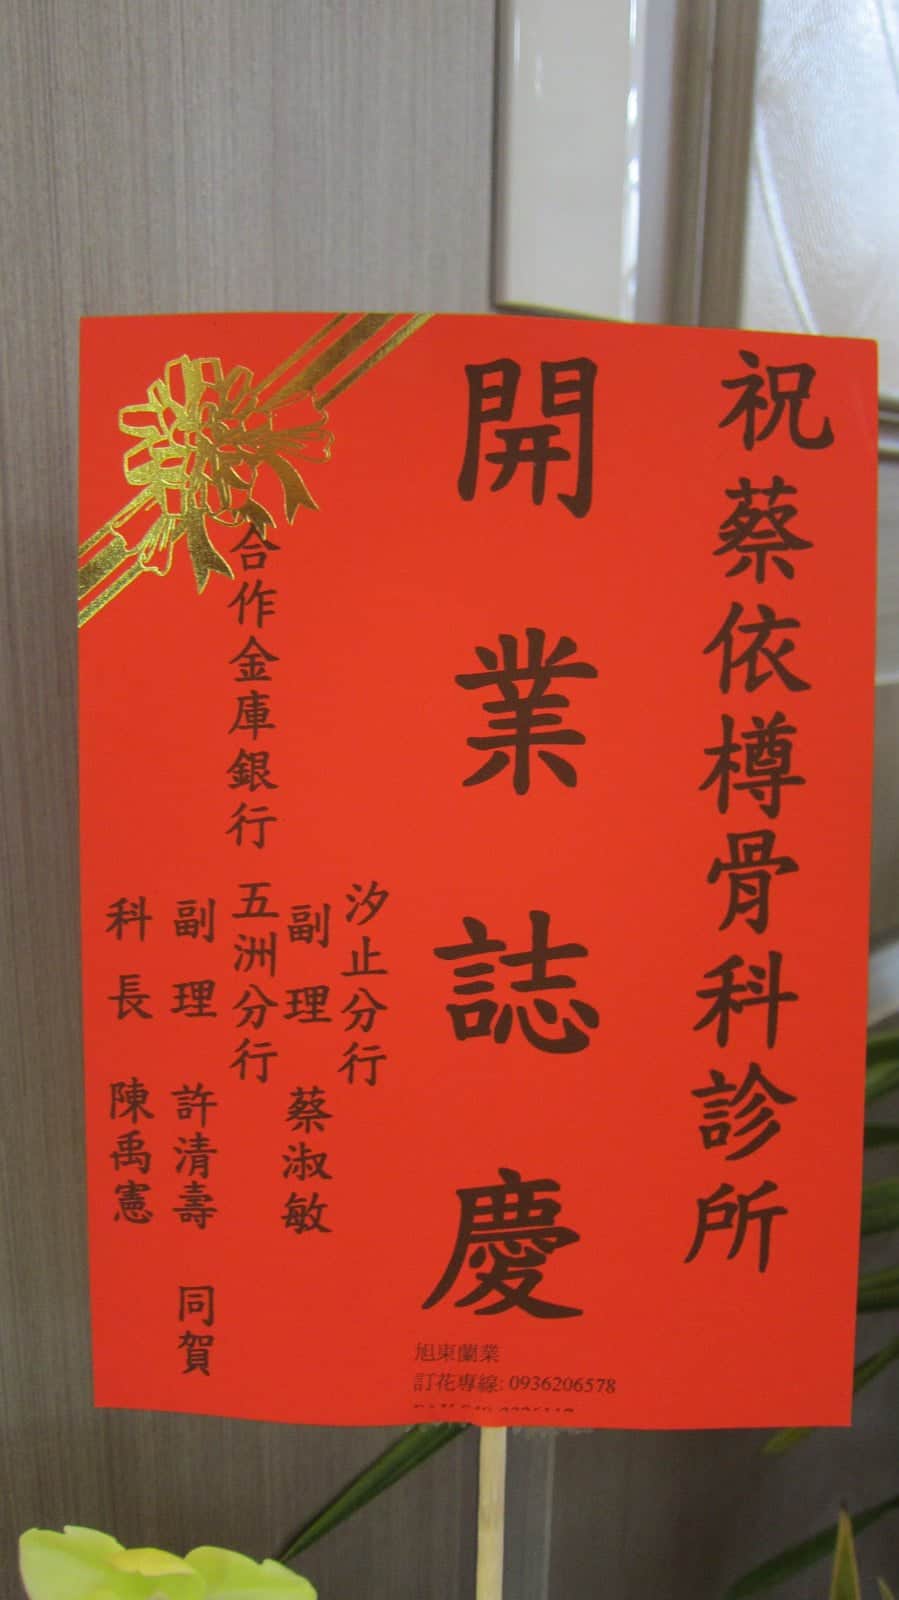 祝蔡依樽骨科診所
開業誌慶
汐止分行
副理 蔡淑敏
合作金庫銀行 五洲分行
副理 許清壽 同賀
科長 陳禹憲
旭東蘭業
訂花專線: 0936206578